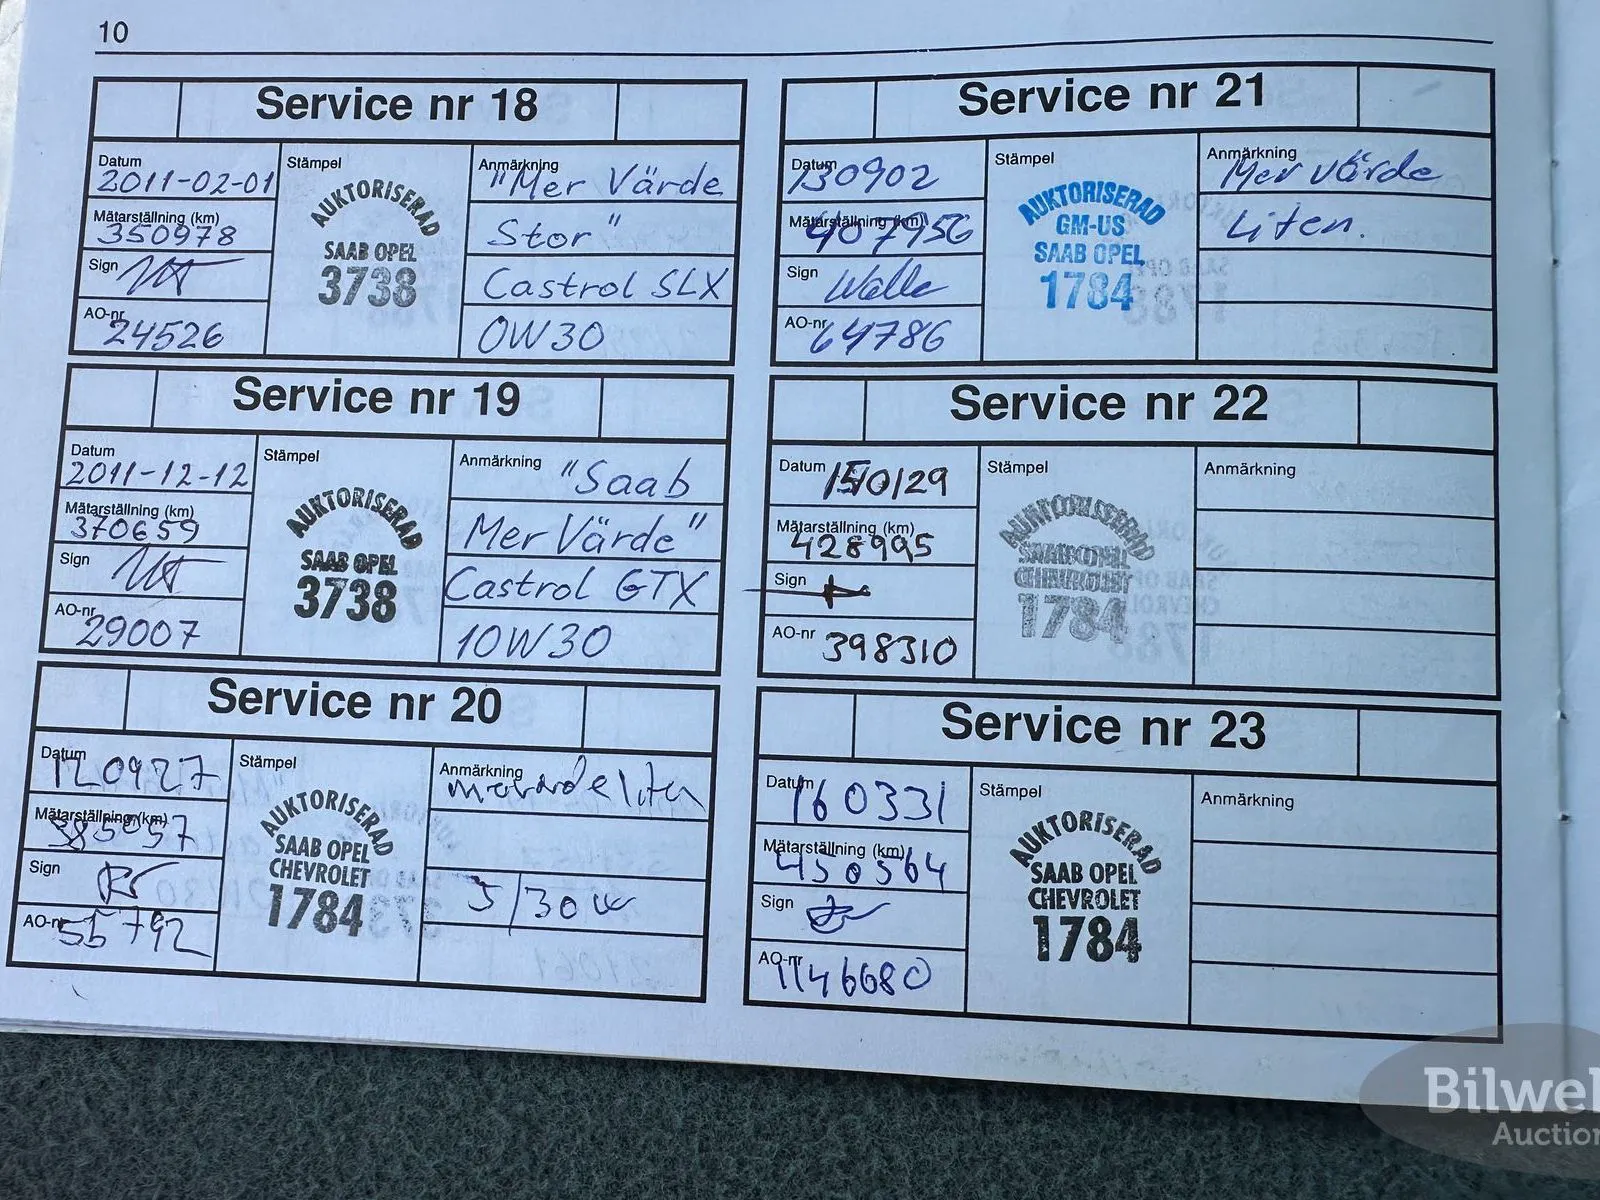 10
Service nr 18
Datum
2011-02-01
Mätarställning (km)
350978
Sign
AO-nr
24526
Stämpel
AUKTORISERAD
SAAB OPEL
3738
Anmärkning
"Mer Värde
Stor"
Castrol SLX
0W30
Service nr 19
Datum
2011-12-12
Mätarställning (km)
370659
Sign
AO-nr
29007
Stämpel
AUKTORISERAD
SAAB OPEL
3738
Anmärkning
"Saab
Mer Värde"
Castrol GTX
10W30
Service nr 20
Datum
120927
Mätarställning (km)
385057
Sign
AO-nr
55792
Stämpel
AUKTORISERAD
SAAB OPEL
CHEVROLET
1784
Anmärkning
5/30W
Service nr 21
Datum
130902
Mätarställning (km)
407956
Sign
AO-nr
64786
Stämpel
AUKTORISERAD
GM-US
SAAB OPEL
1784
Anmärkning
Mer värde
Liten.
Service nr 22
Datum
Mätarställning (km)
428995
Sign
AO-nr
398310
Stämpel
AUKTORISERAD
SAAB OPEL
CHEVROLET
1784
Anmärkning
Service nr 23
Datum
160331
Mätarställning (km)
450564
Sign
AO-nr
1146680
Stämpel
AUKTORISERAD
SAAB OPEL
CHEVROLET
1784
Anmärkning
Bilwel
Auction